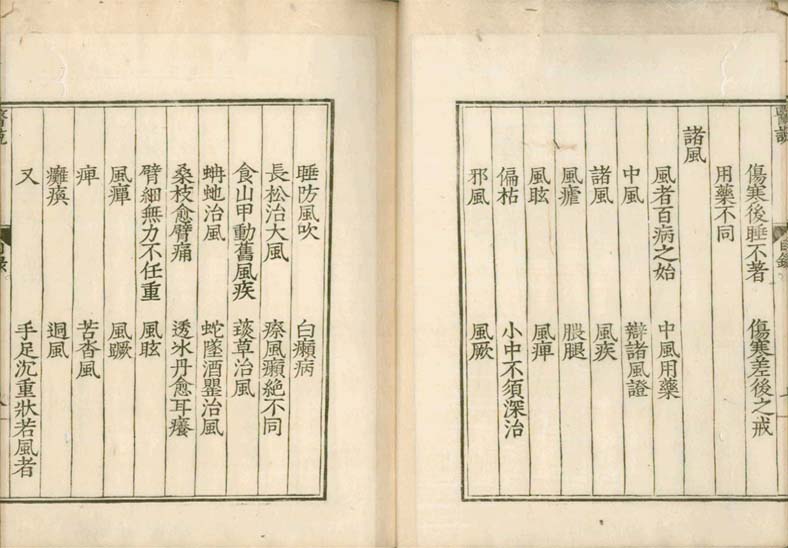 傷寒後睡不著 傷寒差後之戒
用藥不同
諸風
風者百病之始 中風用藥
中風 辯諸風證
諸風 風疾
風瘧 腲腿
風眩 風痺
偏枯 小中不須深治
邪風 風厥
睡防風吹 白癩病
長松治大風 療風癩絶不同
食山甲動舊風疾 草治風
蚺虵治風 蛇墜酒甖治風
桑枝愈臂痛 透冰丹愈耳癢
臂細無力不任重 風眩
風癉 風蹶
痺 苦沓風
癱瘓 迵風
又 手足沉重狀若風者
醫說
目錄